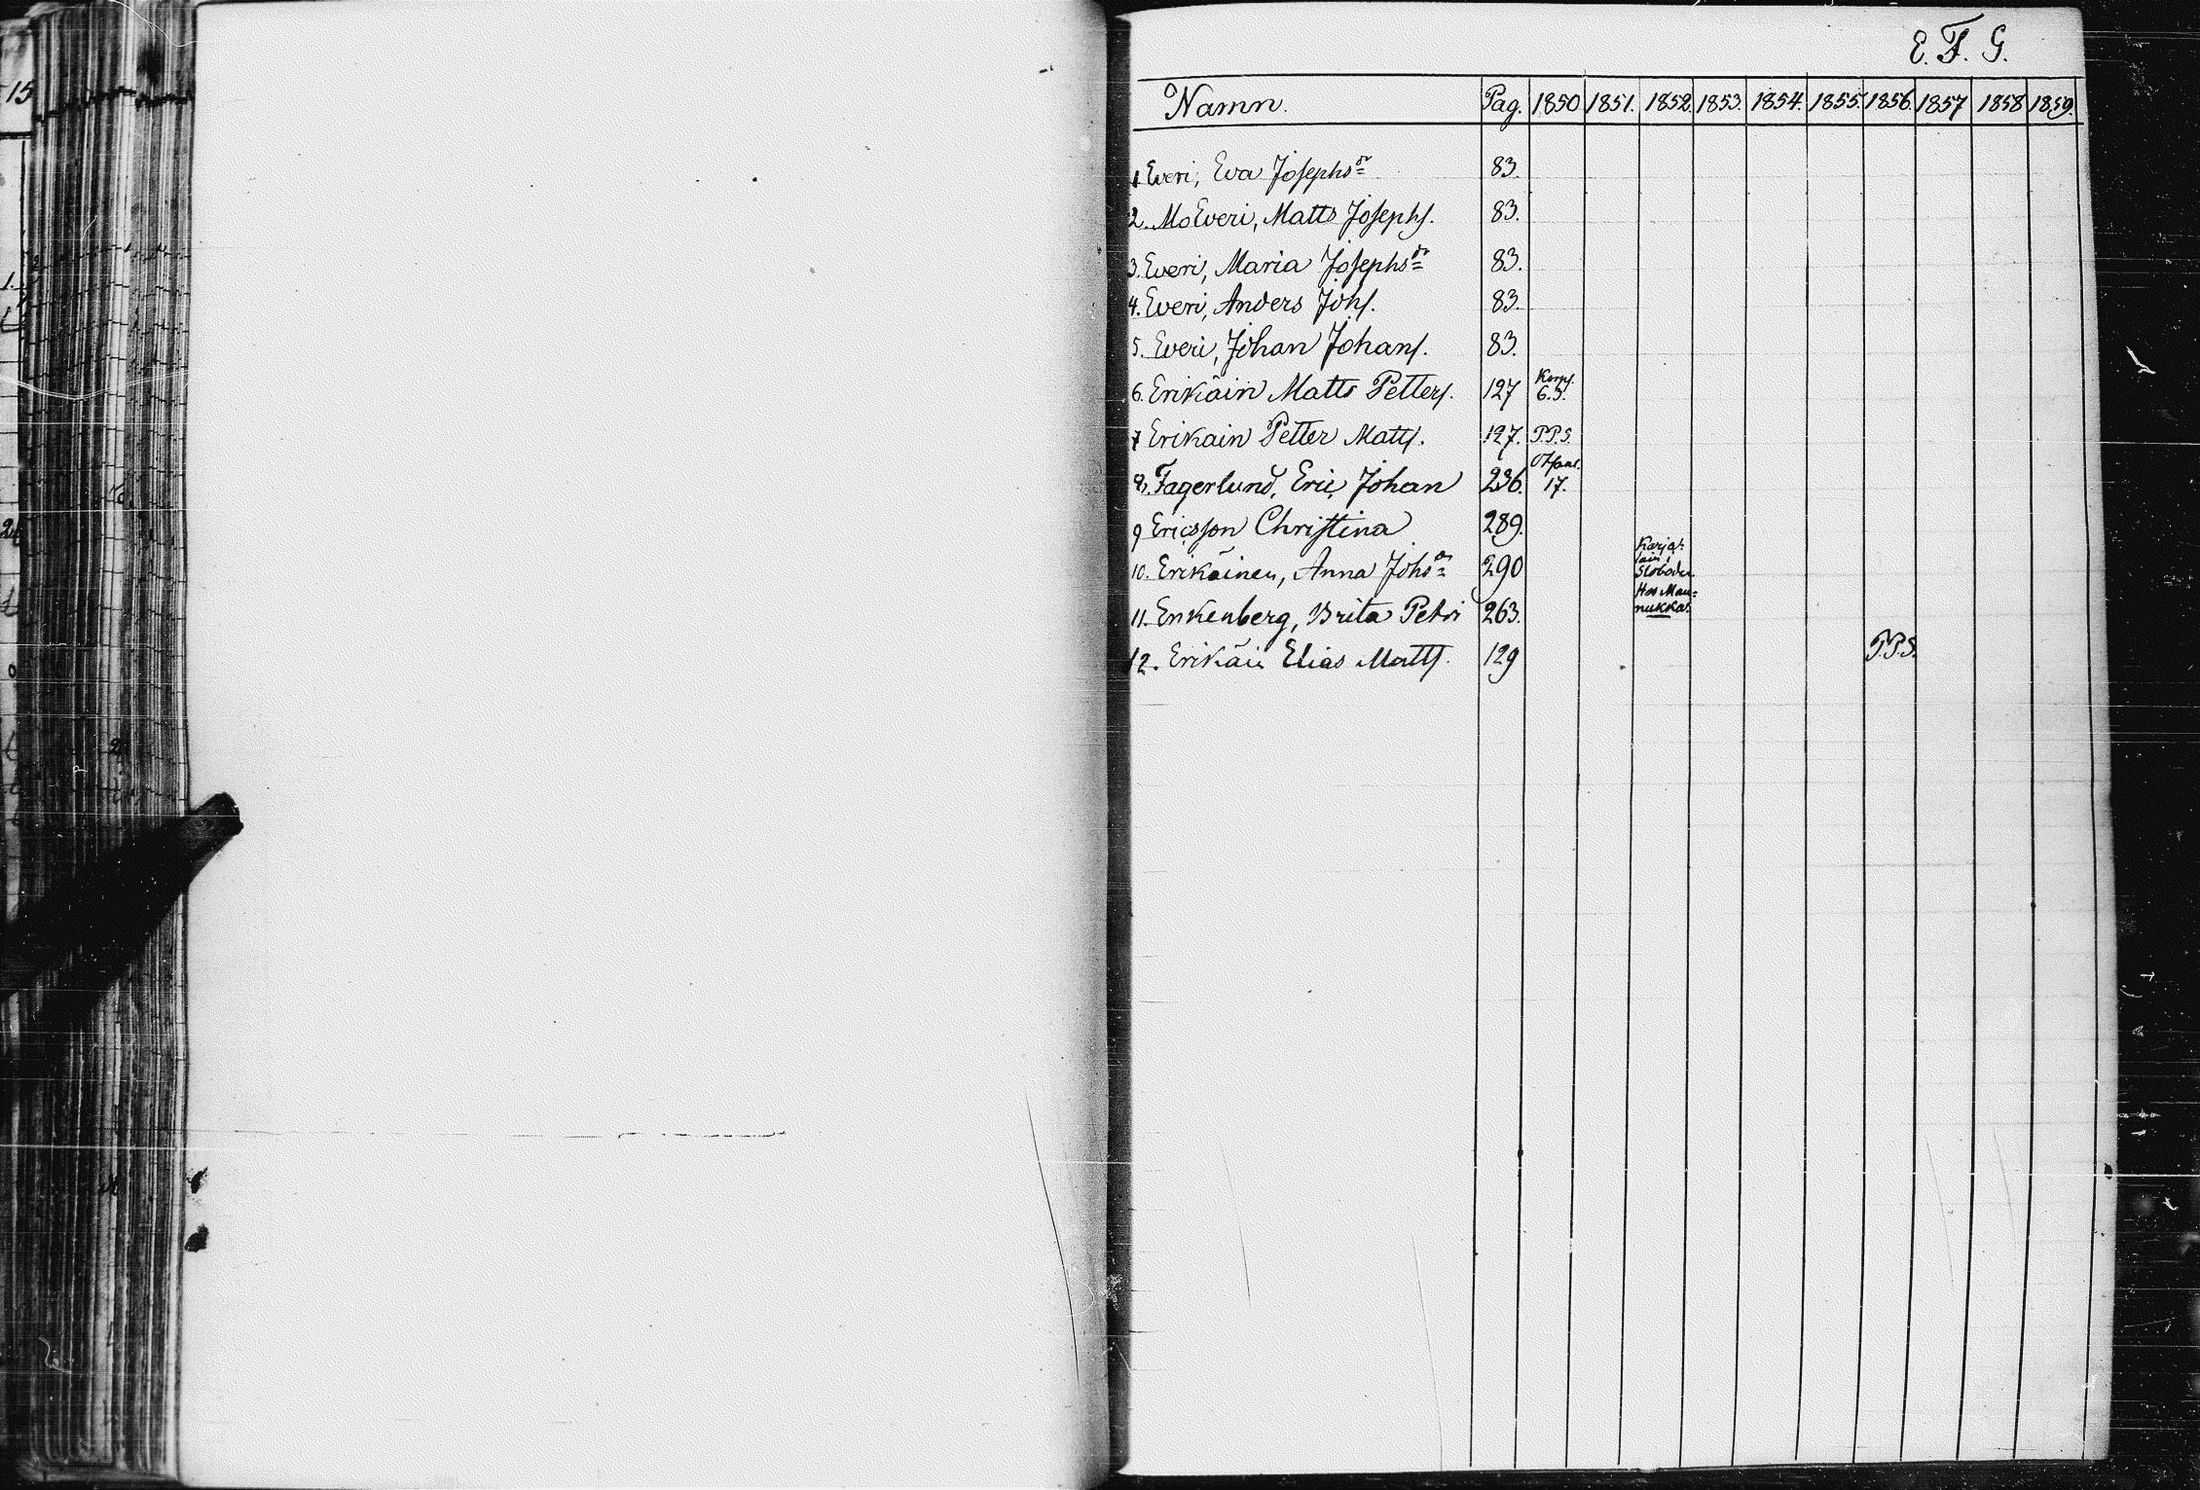 E. F. G.
Namn. Pag. 1850 1851. 1852 1853. 1854. 1855. 1856. 1857 1858 1859.
1 Everi, Eva Josephsdr 83.
2. Mo Everi, Matts Josephs. 83.
3. Everi, Maria Josephsdr 83.
4. Everi, Anders Johs. 83.
5. Everi, Johan Johans. 83.
6. Erikäin Matts Petters. 127 6.3.
7 Erikäin Petter Matts. 127. P.P.S.
8. Fagerlund, Eric Johan 236. 17.
9 Ericsson Christina 289.
10. Erikäinen, Anna Johsdr 290 Karja=
lain
Sloboda.
11. Enkenberg, Brita Petri 263. Hos Man=
nukka.
12. Erikäin Elias Matts. 129 P.P.S.